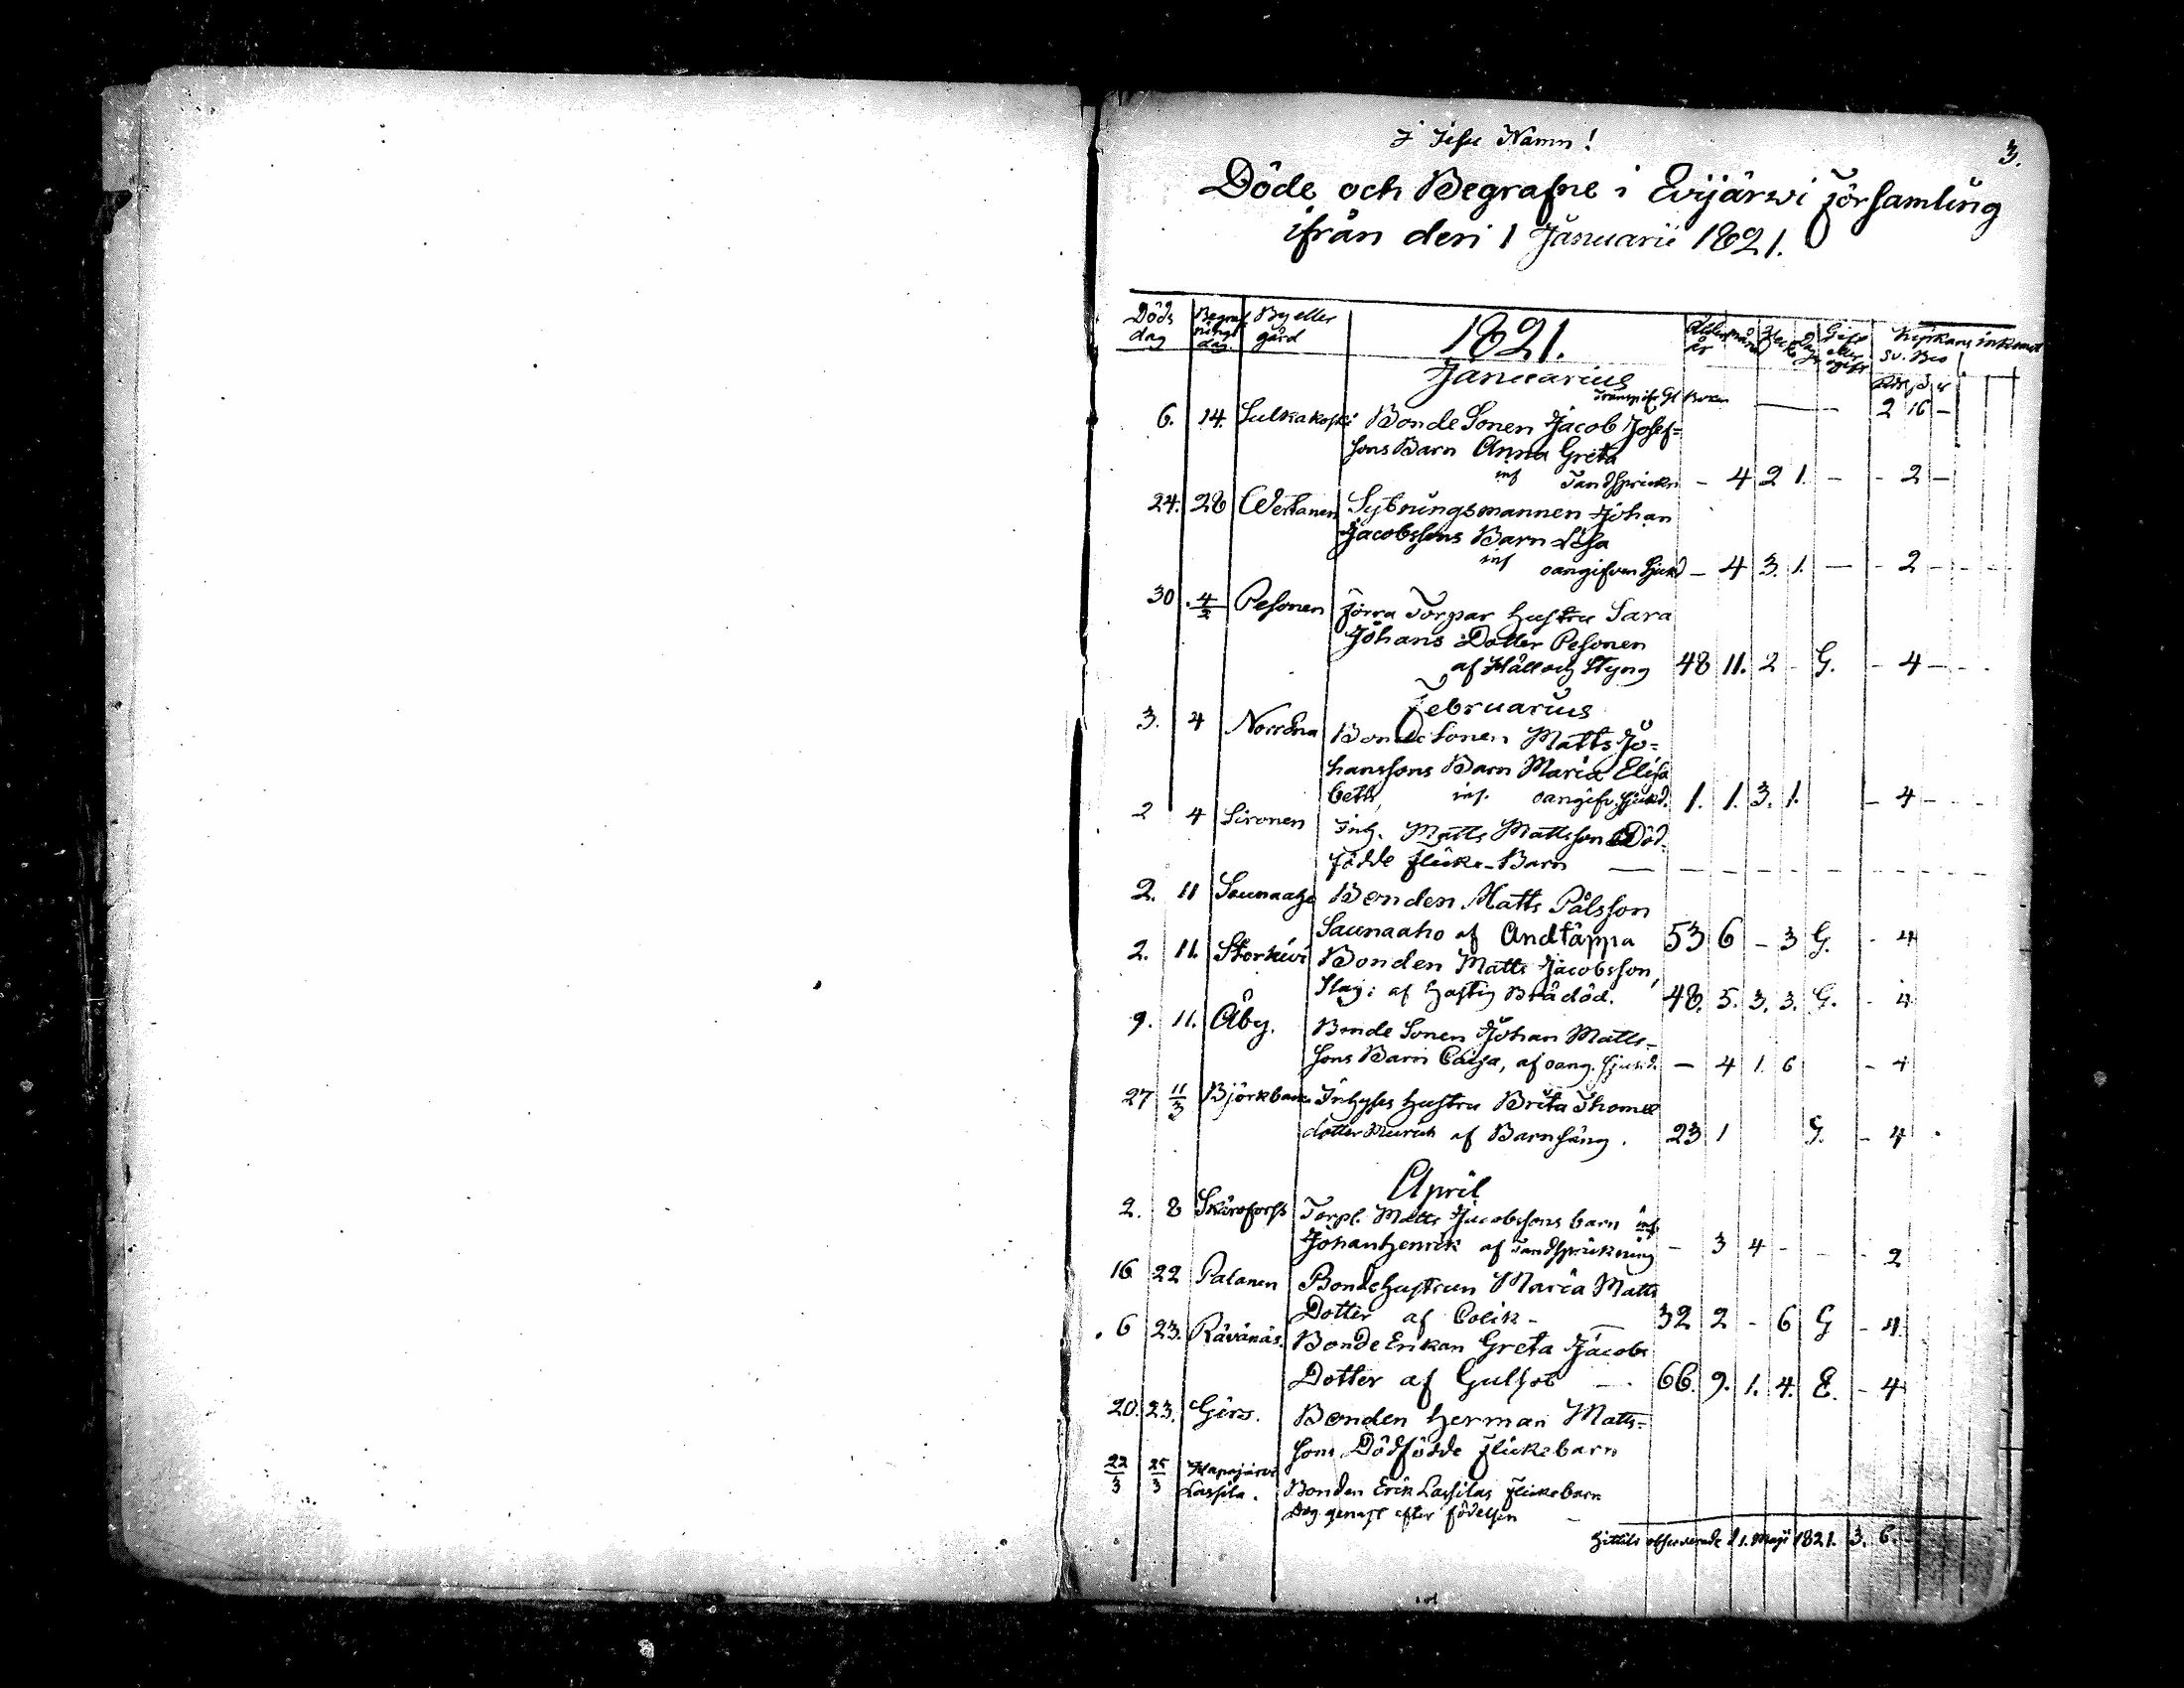 3.
I Jesu Namn!
Döde och Begrafne i Evijärwi församling
ifrån den 1 Januarii 1821.
Döds dag Begraf nings dag By eller gård 1821. Ålder år Gift eller ogift Kyrkans inkomst
Sv. Bco
Januarius
2 16 –
6. 14. Sulkakoski Bonde Sonen Jacob Josef=
sons Barn Anna Greta
inf Tandsprickn – 4 2 1. – - 2 –
24. 28 Wertanen Sytningsmannen Johan
Jacobssons Barn Lisa
inf oangifven sjukd – 4 3. 1. — - 2 –
30 4/2 Pesonen förra Torpar hustru Sara
Johans Dotter Pesonen
af Håll och Styng 48 11. 2 - G. - 4 –
Februarius
3. 4 Norréna Bonde Sonen Matts Jo=
hanssons Barn Maria Elisa
beth, inf. oangifv. sjukd. 1. 1. 3. 1. – 4 –
2 4 Sironen Inh. Matts Mattsson Död
födde flicke-Barn
2. 11 Saunaaho Bonden Matts Pålsson
Saunaaho af Andtäppa 53 6 – 3 G. - 4
2. 11. Storkivi Bonden Matts Jacobsson,
Slag: af hastig Brådöd. 48. 5. 3. 3. G. - 4
9. 11. Åby. Bonde Sonen Johan Matts-
sons Barn Caisa, af oang. sjukd. – 4 1. 6 - 4
27 11/3 Björkbacka Inhyses hustru Brita Thomæ
dotter af Barnsäng. 23 1 G. - 4
April
2. 8 Skärofors Torp. Matts Jacobssons barn inf.
Johan Henrik af Tandsprickning – 3 4 - - - 2
16 22 Palanen Bondehustrun Maria Matts
Dotter af Colik - 32 2 - 6 G - 4
6 23. Rävänäs. Bonde Enkan Greta Jacobs
Dotter af Gulsot 66. 9. 1. 4. E. - 4
20. 23. Gers. Bonden Herman Matts=
sons Dödfödde flickebarn
22/3 25/3 Lassila. Bonden Erik Lassilas flickebarn
Dog genast efter födelsen
hittils observerade d 1. Maji 1821. 3. 6.